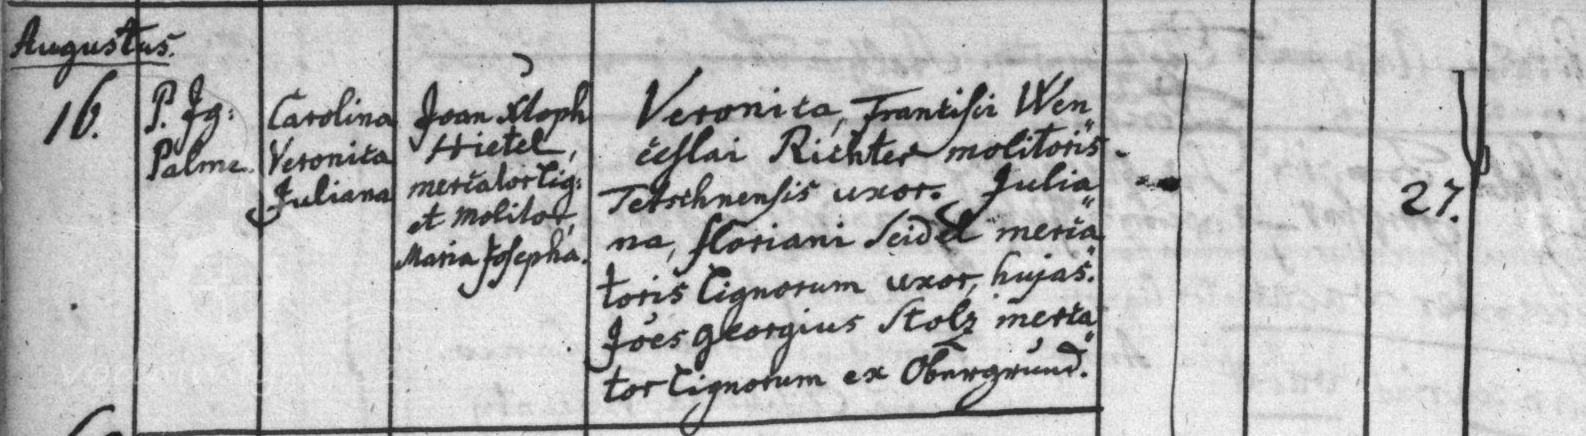 Augustus.
16.
P. Jg:
Palme.
Carolina
Veronica
Juliana
Joan Xtoph
Hietel,
mercator lig:
et molitor,
Maria Josepha.
Veronica, Francisci Wen
ceslai Richter molitoris
Tetschnensis uxor. Julia
na, floriani Seidel merca
toris lignorum uxor, hujas.
Joes georgius Stolz merca
tor lignorum ex Obergrund.
27.